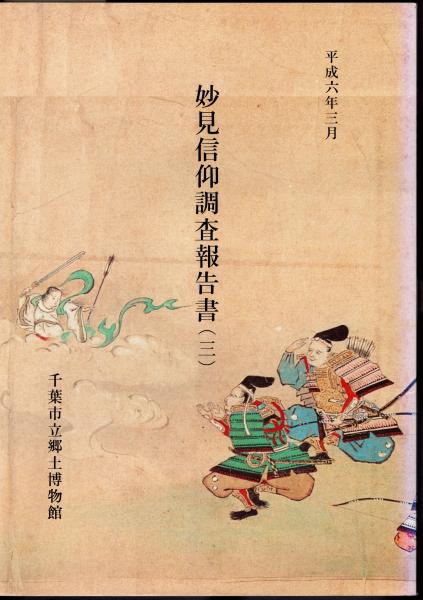 平成六年三月
妙見信仰調査報告書(三)
千葉市立郷土博物館